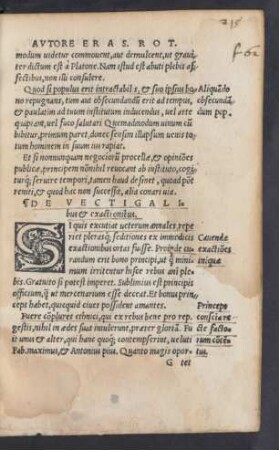 215
f 62
AVTORE ERAS. ROT.
modum uidetur commouent, aut demulcent, ut graui-
ter dictum est à Platone. Nam istud est abuti plebis af-
fectibus, non illi consulere.
Quod si populus erit intractabilis, & suo ipsius bo- Aliquãdo
no repugnans, tum aut obsecundandũ erit ad tempus, obsecundã
& paulatim ad tuum institutum inducendus, uel arte dum pop.
aliqua, uel fuco salutari Quemadmodum uinum cũ
bibitur, primum paret, donec sensim illapsum uenis to-
tum hominem in suum ius rapiat.
Et si nonnunquam negociorũ procellæ, & opiniões
publicæ, principem nõnihil reuocant ab instituto, cogi-
tur seruire tempori, tamen haud desistet, quoad põt
reniti, & quod hac non successit, alia conari uia.
¶DE VECTIGALI
bus & exactionibus.
SI quis excutiat ueterum annales, repe
riet plerasq; seditiones ex immodicis Cauendæ
exactionibus ortas fuisse. Proinde cu- exactiões
randum erit bono principi, ut q̃ mi- iniquæ
nimum irritentur hisce rebus ani ple
bis. Gratuito si potest imperet. Sublimius est principis
officium, q̃ ut mercenarium esse deceat. Et bonus prin-
ceps habet, quicquid ciues possident amantes. Princeps
Fuere cõplures ethnici, qui ex rebus bene pro rep. consciæ re
gestis, nihil in ædes suas intulerunt, præter gloriã. Fu cte facto-
it unus & alter, qui hanc quoq; contempserunt, ueluti rium cõtẽ-
Fab. maximus, & Antonius pius. Quanto magis opor- tus.
G tet